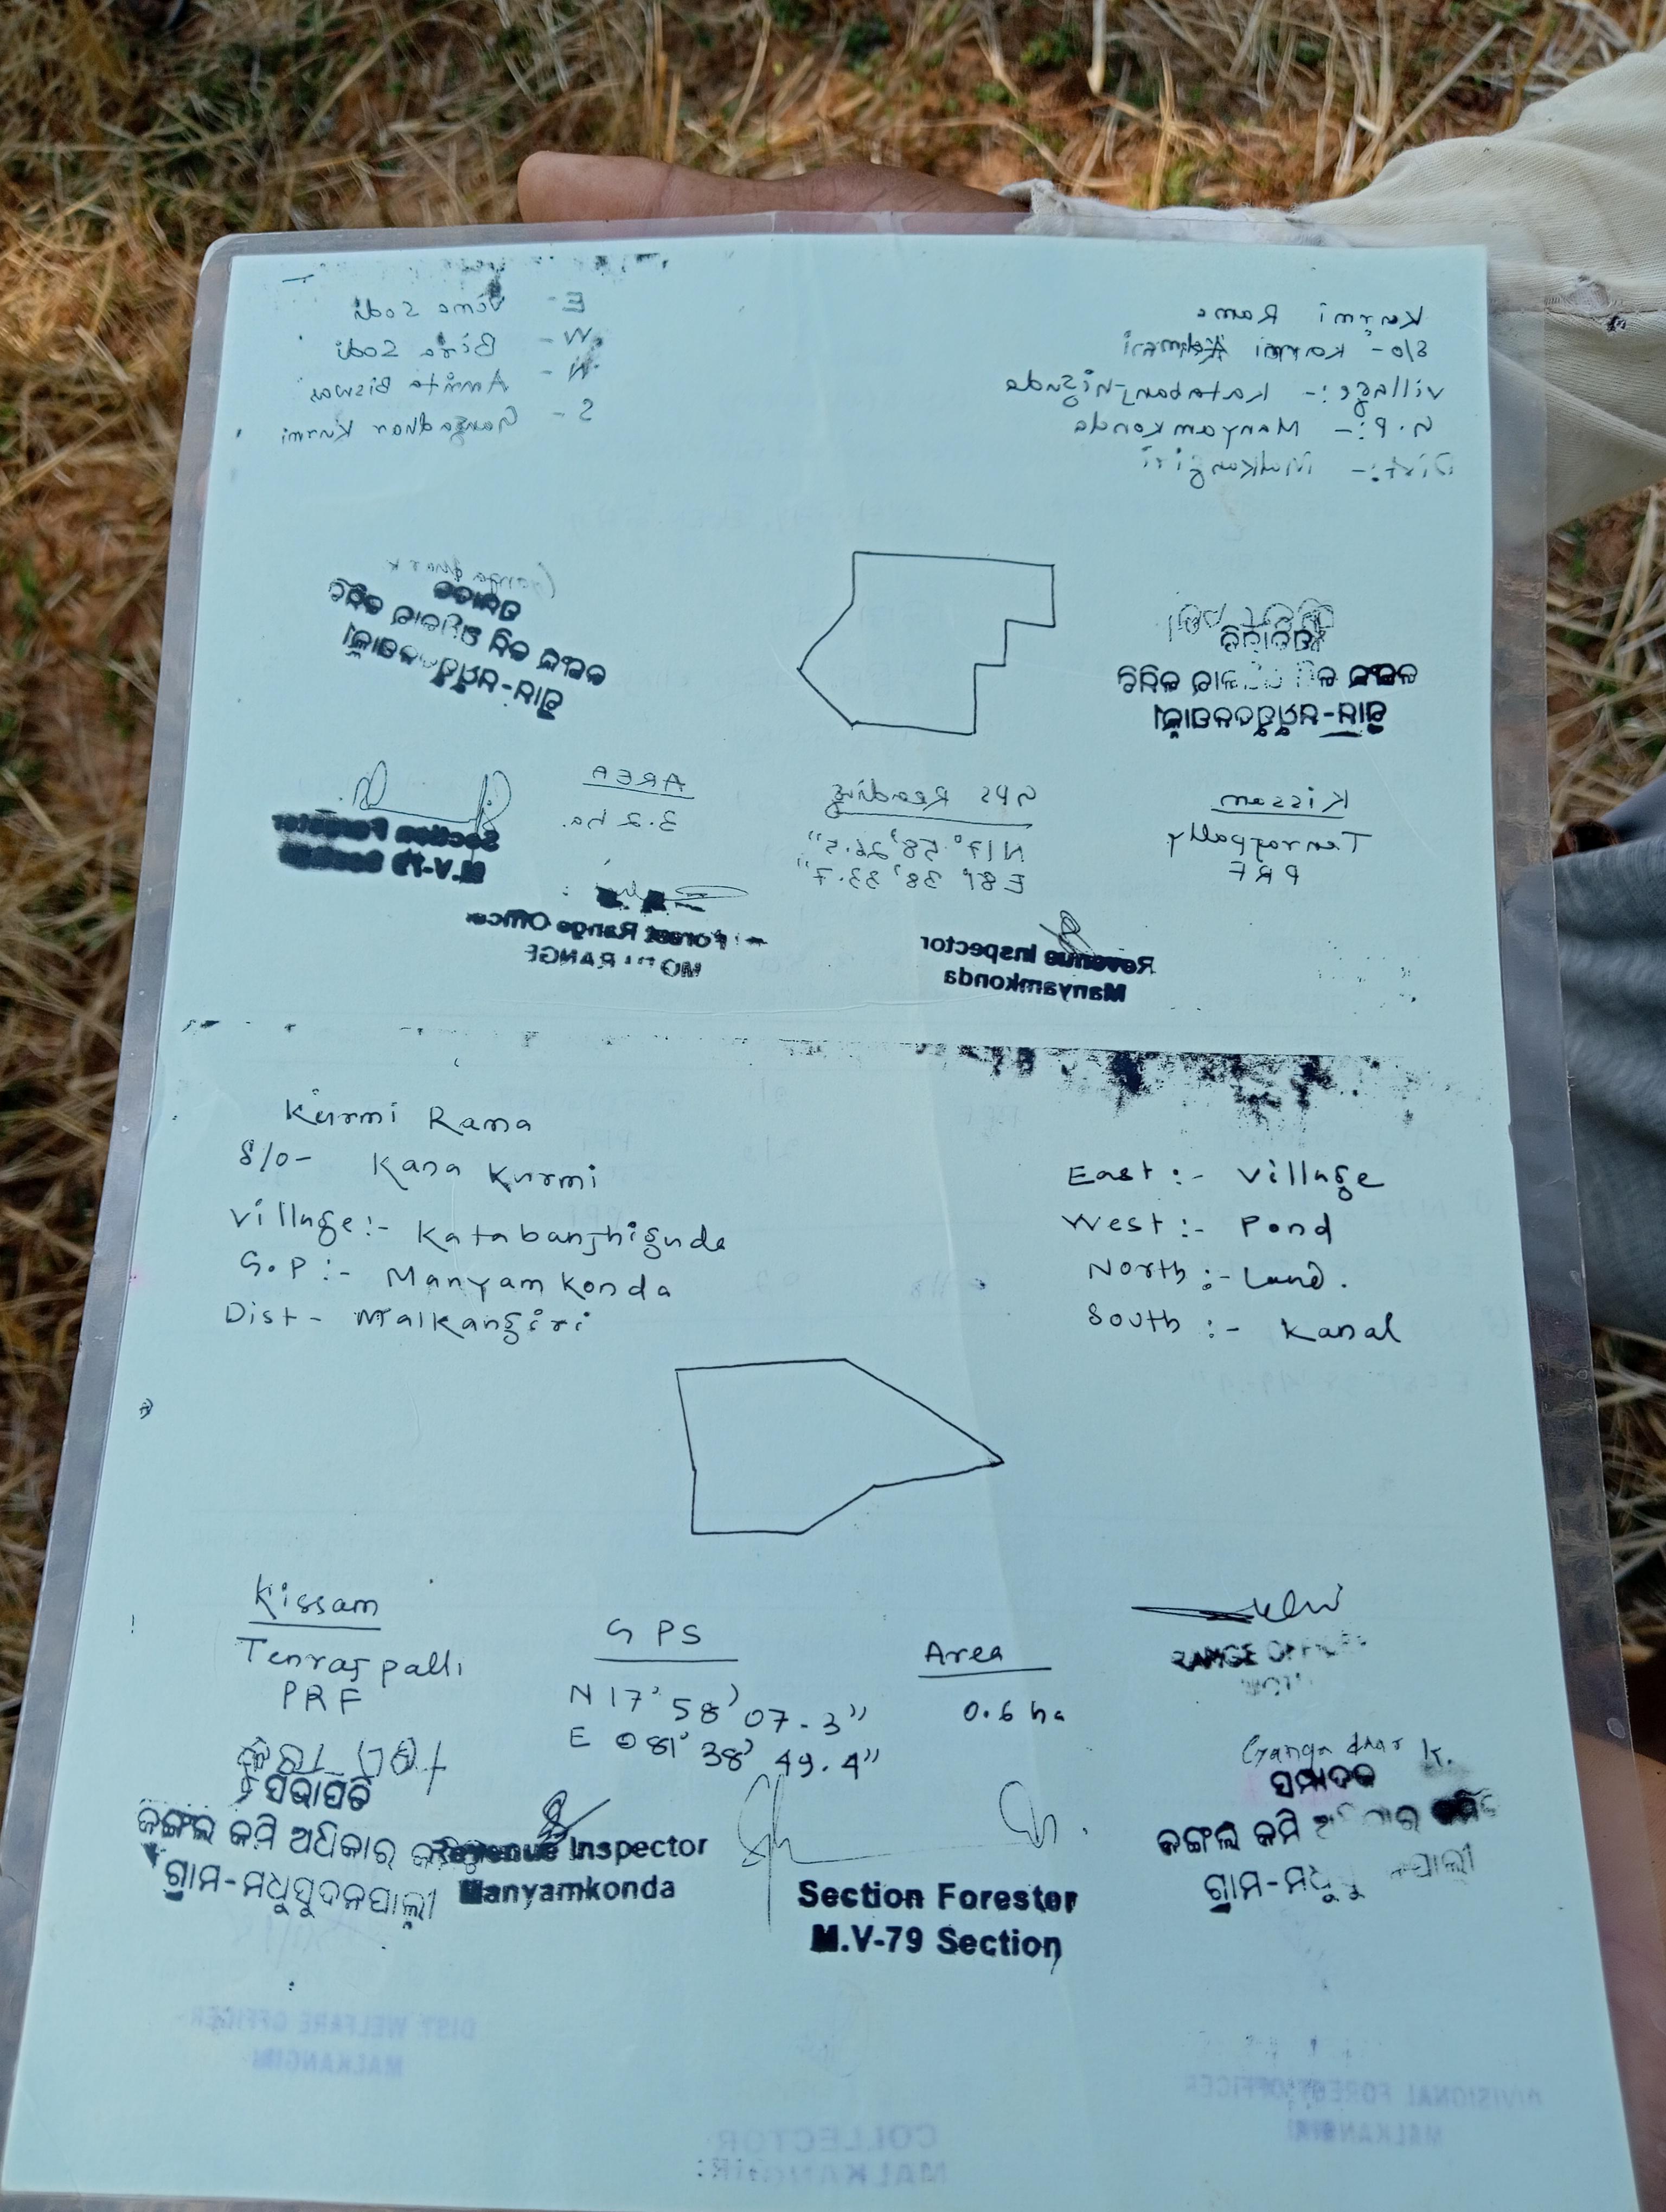 Kurmi Rama
S/o- Karmi
village:- Katabanjhiguda
G.P:- Manyamkonda
Dist:- Malkangiri
E- Sodi
W- Bira Sodi
N- Amrita Biswas
S- Gangadhar Kurmi
Gangadhar K
ସମ୍ପାଦକ
ଜଙ୍ଗଲ ଜମି ଅଧିକାର କମିଟି
ଗ୍ରାମ-ମଧୁସୁଦନପାଲ୍ଲୀ
ସଭାପତି
ଜଙ୍ଗଲ ଜମି ଅଧିକାର କମିଟି
ଗ୍ରାମ-ମଧୁସୁଦନପାଲ୍ଲୀ
Kissam
Tenrajpally
PRF
GPS Reading
N17° 58' 26.5"
E 81° 38' 33.7"
AREA
3.2 ha.
Section Forester
M.V-79 Section
Forest Range Officer
RANGE
Revenue Inspector
Manyamkonda
Kurmi Rama
S/o- Kana Kurmi
village:- Katabanjhiguda
G.P:- Manyamkonda
Dist- Malkangiri
East:- village
West:- Pond
North:- Land.
South:- Kanal
Kissam
Tenrajpalli
PRF
GPS
N 17° 58' 07.3"
E 081° 38' 49.4"
Area
0.6 ha
RANGE OFFICER
ସଭାପତି
ଜଙ୍ଗଲ ଜମି ଅଧିକାର
ଗ୍ରାମ-ମଧୁସୁଦନପାଲ୍ଲୀ
Revenue Inspector
Manyamkonda
Section Forester
M.V-79 Section
Gangadhar K.
ସମ୍ପାଦକ
ଜଙ୍ଗଲ ଜମି
DIST WELFARE OFFICER
MALKANGIRI
COLLECTOR
MALKANGIRI
DIVISIONAL FOREST OFFICER
MALKANGIRI